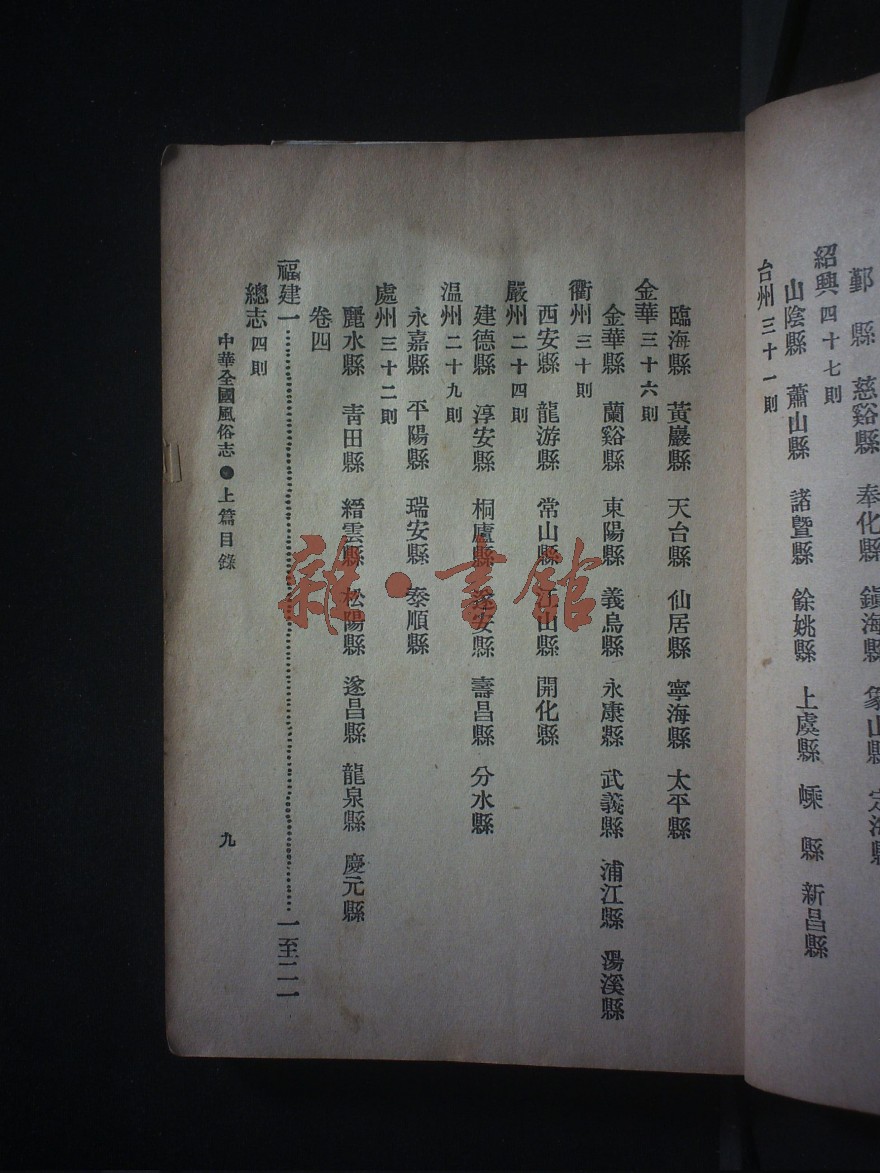 鄞縣　慈谿縣　奉化縣　鎮海縣　象山縣　定海縣
紹興四十七則
山陰縣　蕭山縣　諸暨縣　餘姚縣　上虞縣　嵊縣　新昌縣
台州三十一則
臨海縣　黃巖縣　天台縣　仙居縣　寧海縣　太平縣
金華三十六則
金華縣　蘭谿縣　東陽縣　義烏縣　永康縣　武義縣　浦江縣　湯溪縣
衢州三十則
西安縣　龍游縣　常山縣　江山縣　開化縣
嚴州二十四則
建德縣　淳安縣　桐廬縣　遂安縣　壽昌縣　分水縣
温州二十九則
永嘉縣　平陽縣　瑞安縣　泰順縣
處州三十二則
麗水縣　青田縣　縉雲縣　松陽縣　遂昌縣　龍泉縣　慶元縣
卷四
福建一……一至二一
總志四則
中華全國風俗志●上篇目錄
九
雜·書館